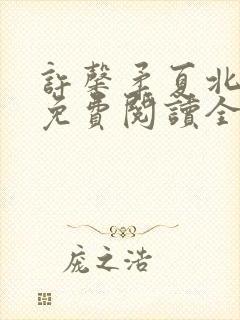 許馨矛夏北
免費閱讀全
庞之浩